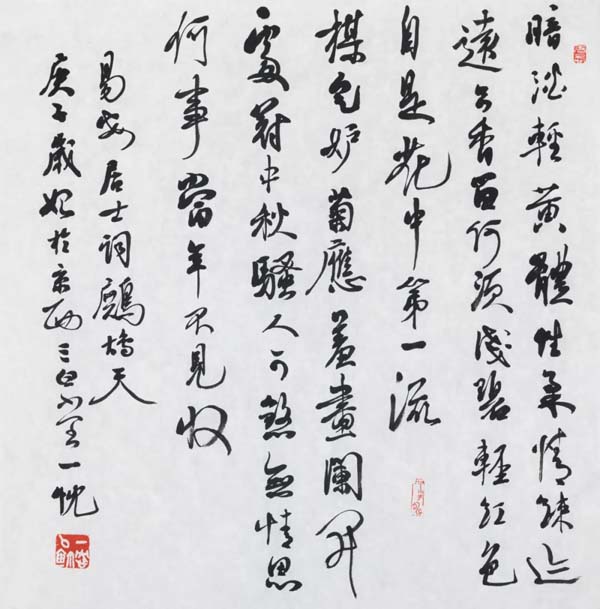 暗澹輕黄體性柔情疎迹
遠只香留何須淺碧輕紅色
自是花中第一流
楳定妒菊應羞畫闌開
處冠中秋騷人可煞無情思
何事當年不見收
易安居士詞鷓鴣天
庚子歲始於京西三白一忱